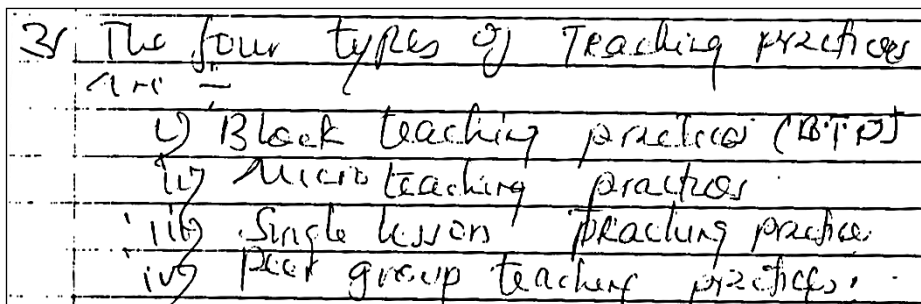 3. The four types of Teaching practices
are :-
i) Block teaching practices (BTP)
ii) Micro teaching practices.
iii) Single lesson teaching practice.
iv) Peer group teaching practices.